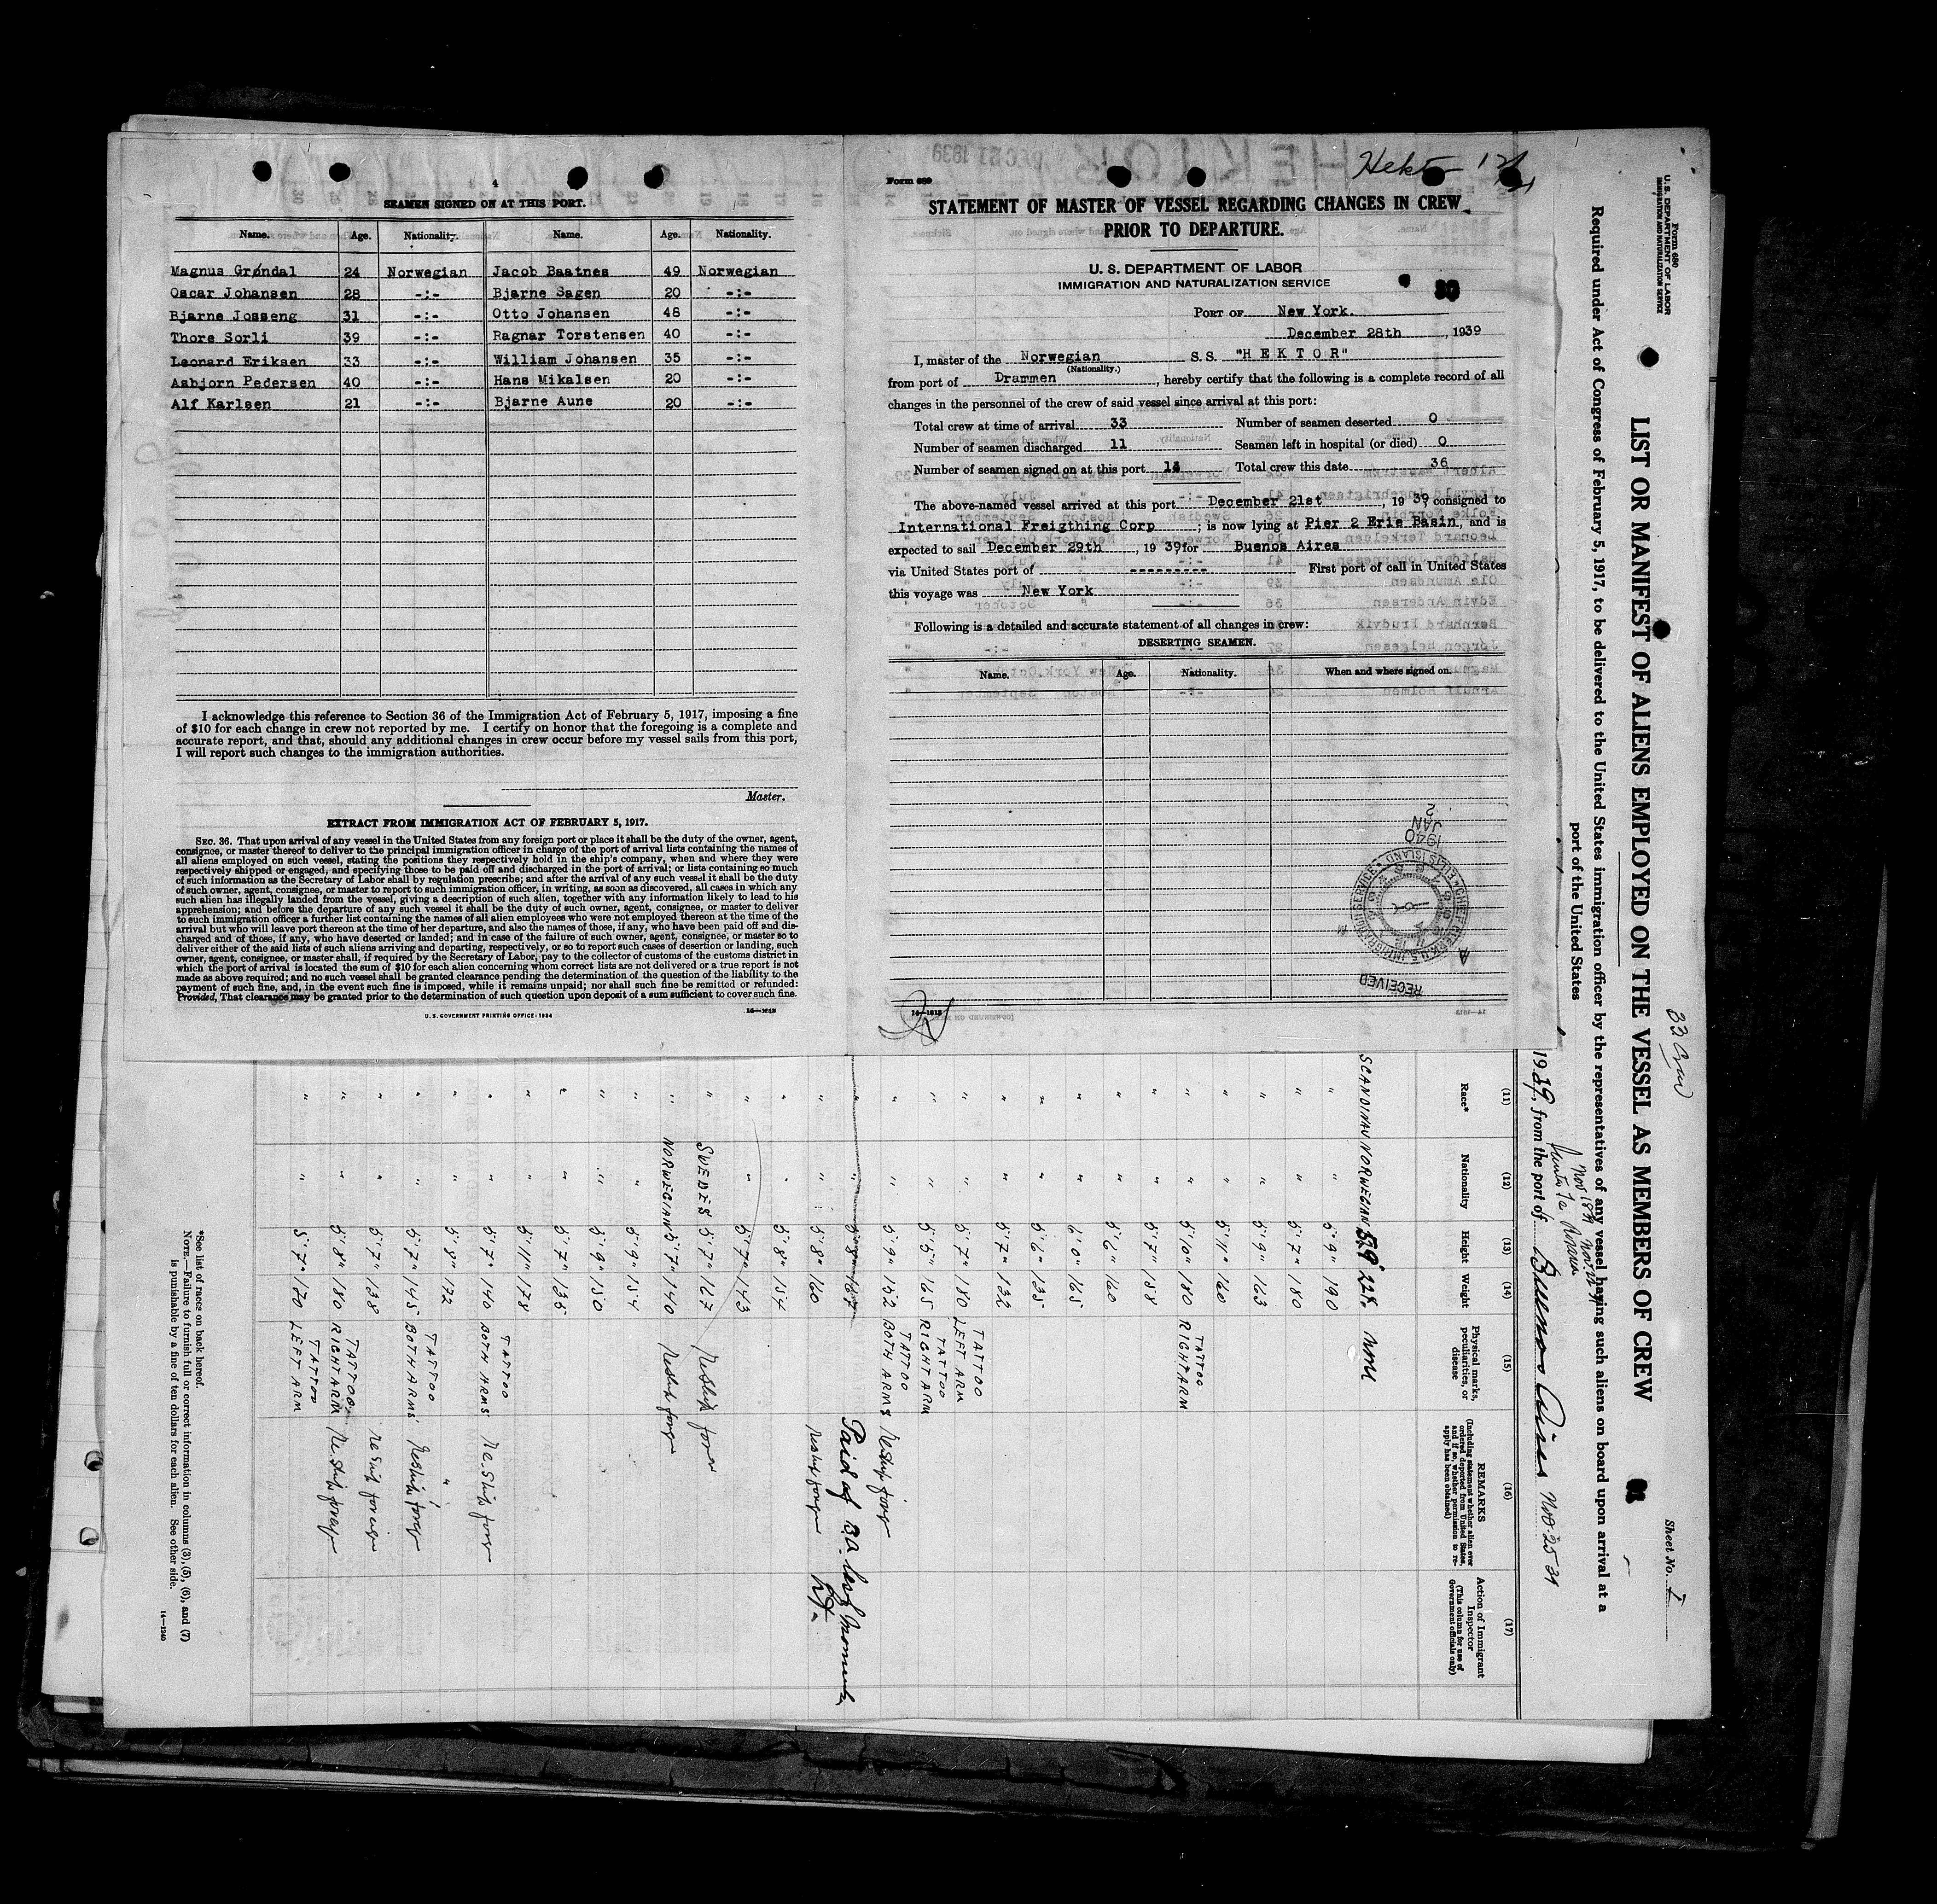 4
SEAMEN SIGNED ON AT THIS PORT.
Name. Age. Nationality. Name. Age. Nationality.
Magnus Grøndal 24 Norwegian Jacob Baatnes 49 Norwegian
Oscar Johansen 28 -:- Bjarne Sagen 20 -:-
Bjarne Josseng 31 -:- Otto Johansen 48 -:-
Thore Sorli 39 -:- Ragnar Torstensen 40 -:-
Leonard Eriksen 33 -:- William Johansen 35 -:-
Asbjorn Pedersen 40 -:- Hans Mikalsen 20 -:-
Alf Karlsen 21 -:- Bjarne Aune 20 -:-
I acknowledge this reference to Section 36 of the Immigration Act of February 5, 1917, imposing a fine
of $10 for each change in crew not reported by me. I certify on honor that the foregoing is a complete and
accurate report, and that, should any additional changes in crew occur before my vessel sails from this port,
I will report such changes to the immigration authorities.
Master.
EXTRACT FROM IMMIGRATION ACT OF FEBRUARY 5, 1917.
SEC. 36. That upon arrival of any vessel in the United States from any foreign port or place it shall be the duty of the owner, agent,
consignee, or master thereof to deliver to the principal immigration officer in charge of the port of arrival lists containing the names of
all aliens employed on such vessel, stating the positions they respectively hold in the ship's company, when and where they were
respectively shipped or engaged, and specifying those to be paid off and discharged in the port of arrival; or lists containing so much
of such information as the Secretary of Labor shall by regulation prescribe; and after the arrival of any such vessel it shall be the duty
of such owner, agent, consignee, or master to report to such immigration officer, in writing, as soon as discovered, all cases in which any
such alien has illegally landed from the vessel, giving a description of such alien, together with any information likely to lead to his
apprehension; and before the departure of any such vessel it shall be the duty of such owner, agent, consignee, or master to deliver
to such immigration officer a further list containing the names of all alien employees who were not employed thereon at the time of the
arrival but who will leave port thereon at the time of her departure, and also the names of those, if any, who have been paid off and dis-
charged and of those, if any, who have deserted or landed; and in case of the failure of such owner, agent, consignee, or master so to
deliver either of the said lists of such aliens arriving and departing, respectively, or so to report such cases of desertion or landing, such
owner, agent, consignee, or master shall, if required by the Secretary of Labor, pay to the collector of customs of the customs district in
which the port of arrival is located the sum of $10 for each alien concerning whom correct lists are not delivered or a true report is not
made as above required; and no such vessel shall be granted clearance pending the determination of the question of the liability to the
payment of such fine, and, in the event such fine is imposed, while it remains unpaid; nor shall such fine be remitted or refunded:
Provided, That clearance may be granted prior to the determination of such question upon deposit of a sum sufficient to cover such fine.
U.S. GOVERNMENT PRINTING OFFICE: 1934
14—1613
Form 689
STATEMENT OF MASTER OF VESSEL REGARDING CHANGES IN CREW
PRIOR TO DEPARTURE.
U. S. DEPARTMENT OF LABOR
IMMIGRATION AND NATURALIZATION SERVICE
PORT OF New York.
December 28th, 1939
I, master of the Norwegian S.S. "H E K T O R"
(Nationality.)
from port of Drammen, hereby certify that the following is a complete record of all
changes in the personnel of the crew of said vessel since arrival at this port:
Total crew at time of arrival 33 Number of seamen deserted 0
Number of seamen discharged 11 Seamen left in hospital (or died) 0
Number of seamen signed on at this port 14 Total crew this date 36
The above-named vessel arrived at this port December 21st, 1939 consigned to
International Freigthing Corp; is now lying at Pier 2 Erie Basin, and is
expected to sail December 29th, 1939 for Buenos Aires
via United States port of --------- First port of call in United States
this voyage was New York
Following is a detailed and accurate statement of all changes in crew:
DESERTING SEAMEN.
Name. Age. Nationality. When and where signed on.
RECEIVED
1940 JAN 2
14—1613
Form 680
U. S. DEPARTMENT OF LABOR
IMMIGRATION AND NATURALIZATION SERVICE
LIST OR MANIFEST OF ALIENS EMPLOYED ON THE VESSEL AS MEMBERS OF CREW
Sheet No.
33 Crew
Required under Act of Congress of February 5, 1917, to be delivered to the United States immigration officer by the representatives of any vessel having such aliens on board upon arrival at a
port of the United States
1939, from the port of Buenos Aires Nov. 25 39
(11) (12) (13) (14) (15) (16) (17)
Race* Nationality Height Weight Physical marks, peculiarities, or disease REMARKS (Including statement whether alien ever ordered deported from United States, and if so, whether permission to reapply has been obtained) Action of Immigrant Inspector (This column for use of Government officials only)
SCANDINAV NORWEGIAN 5'9" 225
" " 5'9" 190
" " 5'7" 180
" " 5'9" 163
" " 5'11" 160
" " 5'10" 180 TATTOO RIGHT ARM
" " 5'7" 158
" " 5'6" 160
" " 6'0" 165
" " 5'6" 135
" " 5'7" 132
" " 5'7" 180 TATTOO LEFT ARM
" " 5'5" 165 TATTOO RIGHT ARM
" " 5'9" 152 TATTOO BOTH ARMS Reship foreign
" " 5'8" 167 Paid of
" " 5'8" 160 Reship foreign
" " 5'8" 154
" " 5'7" 143
" SWEDES 5'7" 167 Reship for
" NORWEGIAN 5'7" 140 Reship foreign
" " 5'9" 154
" " 5'9" 150
" " 5'7" 135
" " 5'11" 178
" " 5'7" 140 TATTOO BOTH ARMS Reship foreign
" " 5'8" 172 "
" " 5'7" 145 TATTOO BOTH ARMS Reship foreign
" " 5'7" 138 Reship foreign
" " 5'8" 180 TATTOO RIGHT ARM Reship foreign
" " 5'7" 170 TATTOO LEFT ARM
*See list of races on back hereof.
NOTE.—Failure to furnish full or correct information in columns (3), (5), (6), and (7)
is punishable by a fine of ten dollars for each alien. See other side.
14—1240